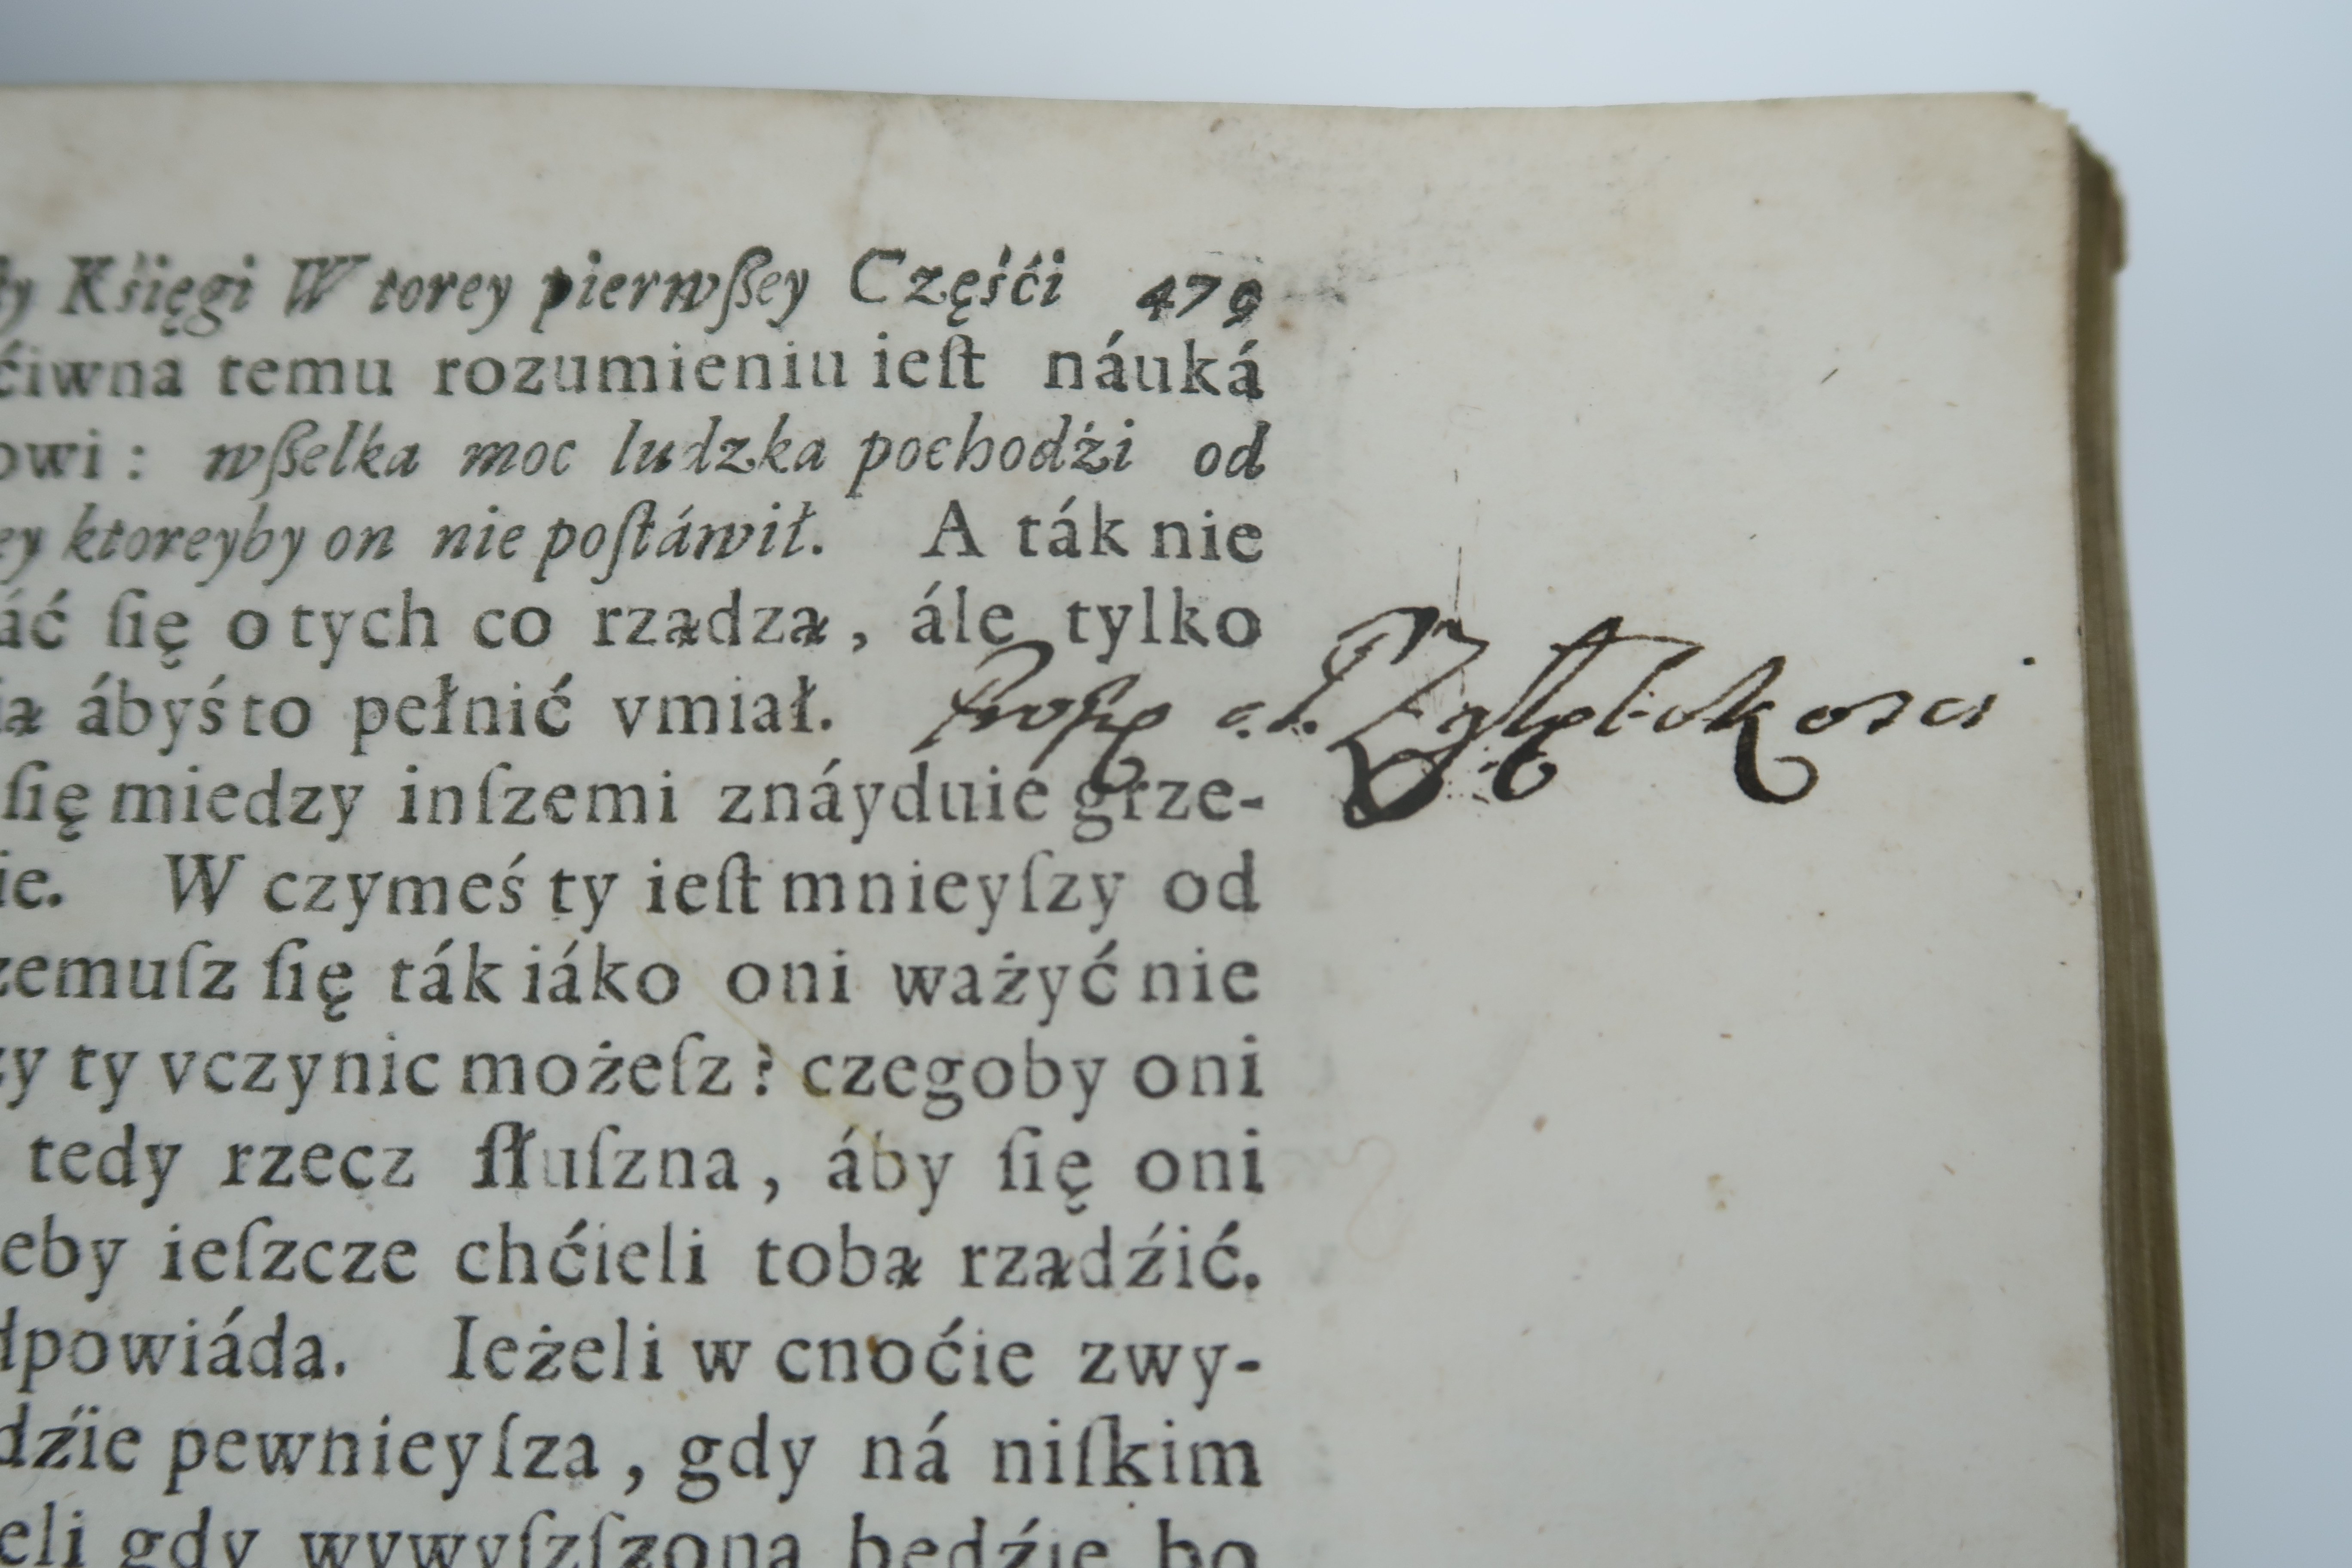 Kśięgi W torey pierwſzey Częśći 479
ćiwna temu rozumieniu ieſt náuká
owi : wſzelka moc ludzka pochodźi od
ey ktoreyby on nie poſtáwił. A ták nie
áć ſię o tych co rządzą, ále tylko
ią ábyś to pełnić vmiał.
Zgłębokosci
ſię miedzy inſzemi znáyduie grze-
ie. W czymeś ty ieſt mnieyſzy od
zemuſz ſię ták iáko oni ważyć nie
zy ty vczynic możeſz? czegoby oni
tedy rzecz ſłuſzna, áby ſię oni
eby ieſzcze chćieli tobą rządźić.
dpowiáda. Ieżeli w cnoćie zwy-
dźie pewnieyſza, gdy ná niſkim
eli gdy wywyſzſzona będźie bo